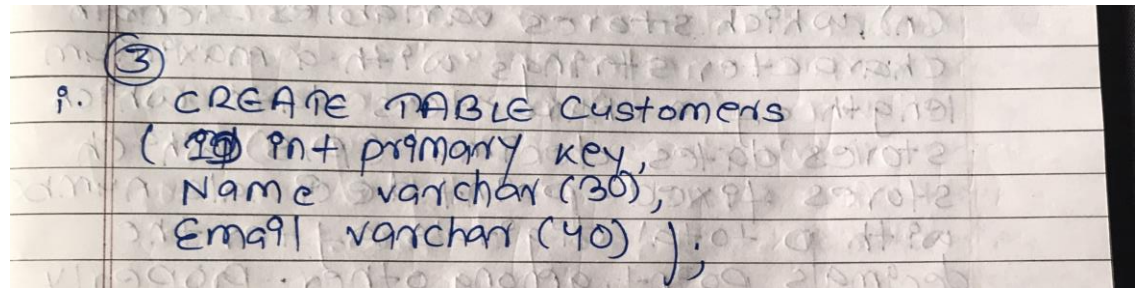 3
i. CREATE TABLE Customers
( ID int primary key,
Name varchar (30),
Email varchar (40) );